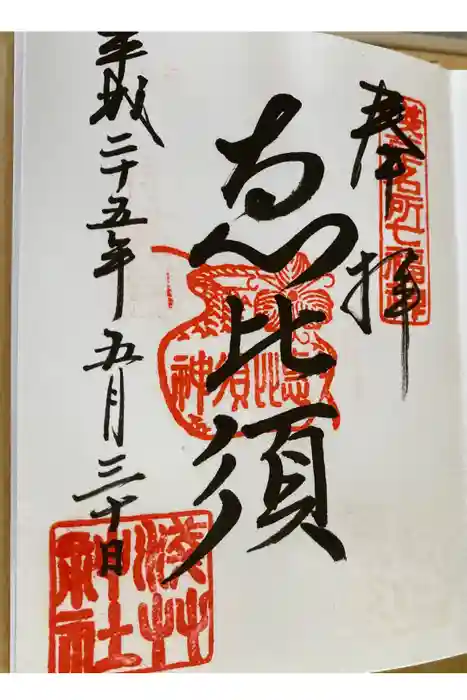 奉拝
淺草名所七福神
恵比須
恵比須神
平成二十五年五月三十日
淺草神社